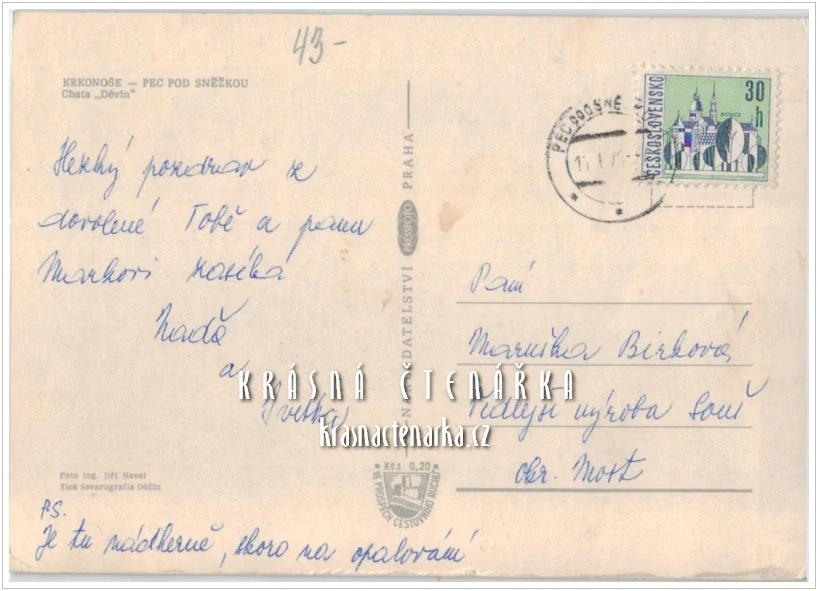 43-
KRKONOŠE — PEC POD SNĚŽKOU
Chata „Děvín"
Hezký pozdrav z
dovolené Tobě a panu
Markovi zasílá
Naďa
a
Iveta
P.S.
Je tu nádherně, skoro na opalování
Foto ing. Jiří Havel
Tisk Severografia Děčín
NAKLADATELSTVÍ PRESSFOTO PRAHA
Kčs 0,20
VE PROSPĚCH CESTOVNÍHO RUCHU
PEC POD SNĚ
ČESKOSLOVENSKO
30 h
KOŠICE
Paní
Maruška Birková
výroba Souš
okr. Most
KRÁSNÁ ČTENÁŘKA
krasnactenarka.cz